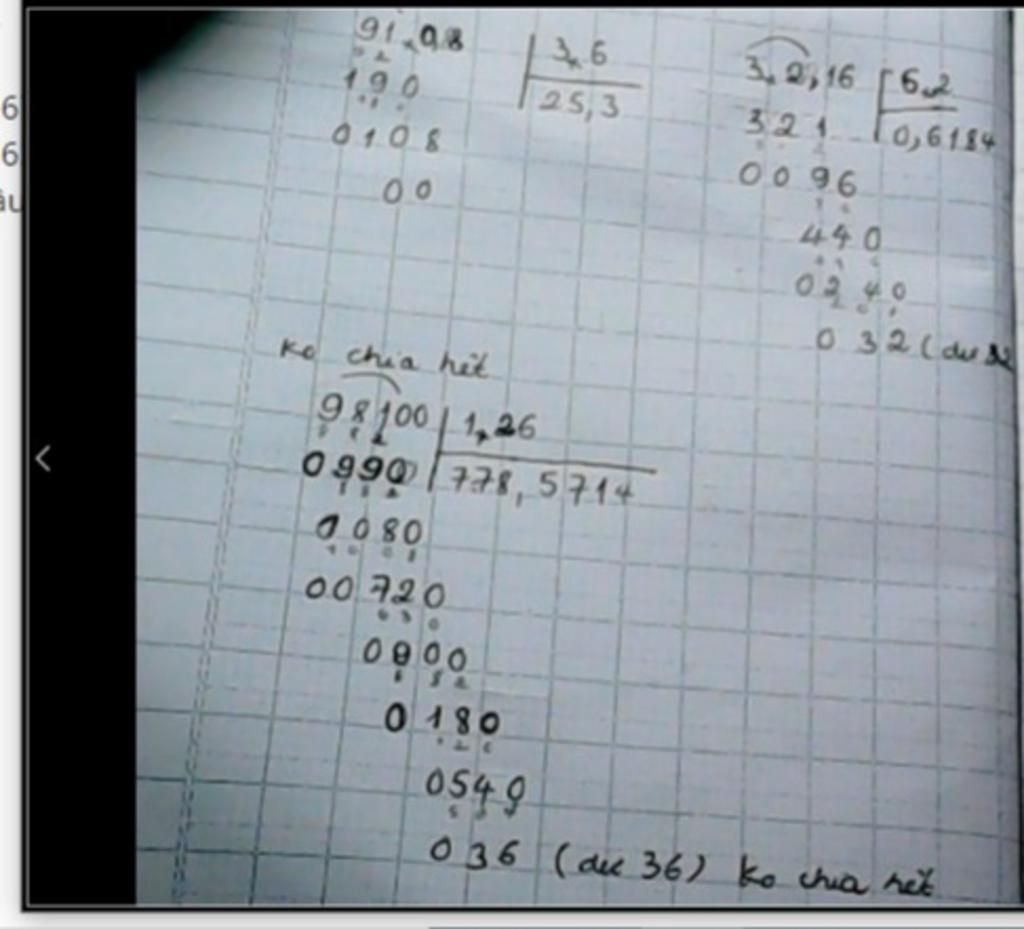 6
6
âu
91,08 | 3,6
190 | 25,3
0108
00
3,2,16 | 6,2
321 | 0,6184
0096
440
0240
032 (dư 32
Ko chia hết
98100 | 1,26
0990 | 778,5714
1080
00720
0900
0180
0540
036 (dư 36) Ko chia hết